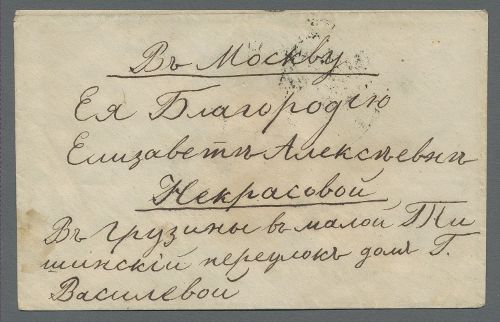 Въ Москву
Ея Благородію
Елизаветѣ Алексѣевнѣ
Некрасовой
Въ Грузины въ малой Ти
шинскій переулокъ домъ Г.
Василевой